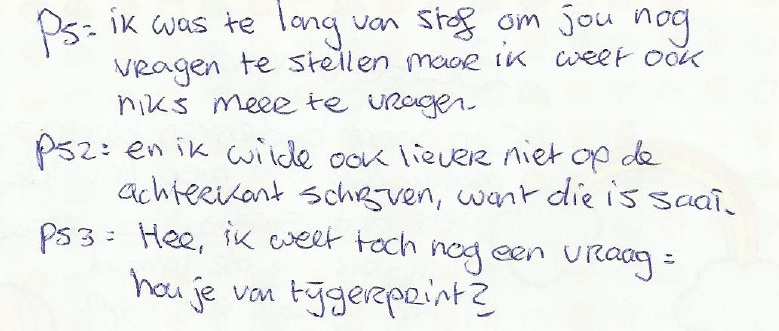 PS= ik was te lang van stof om jou nog
vragen te stellen maar ik weet ook
niks meer te vragen.
PS2: en ik wilde ook liever niet op de
achterkant schrijven, want die is saai.
PS3= Hee, ik weet toch nog een vraag=
hou je van tijgerprint?